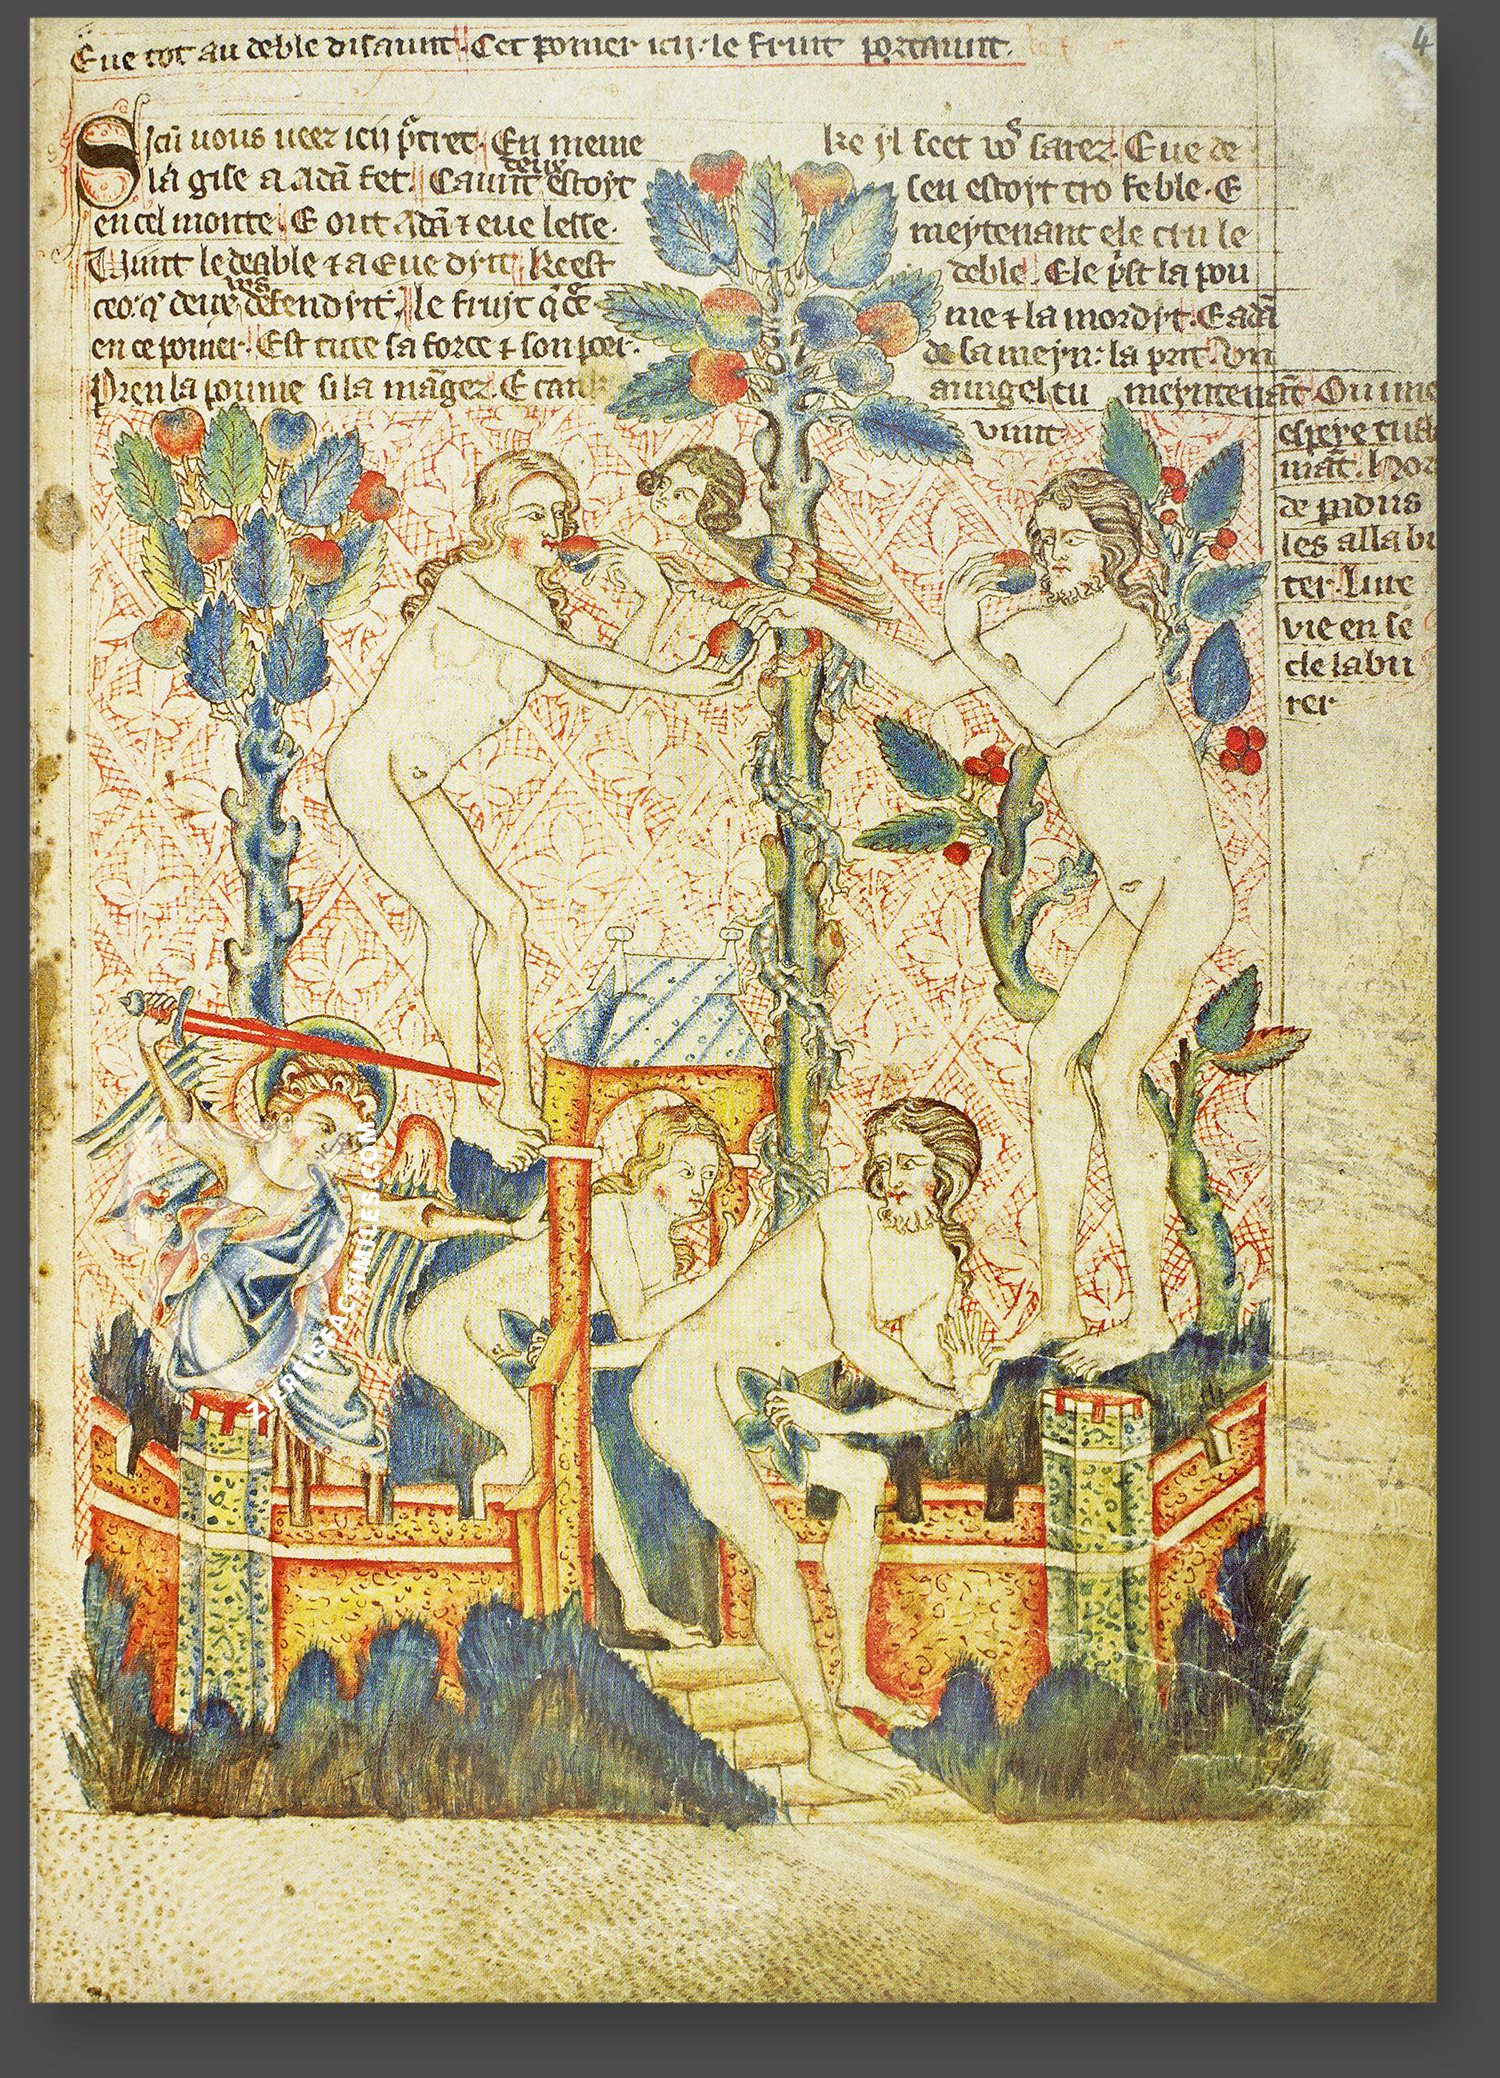 Eue tot au deble disaunt. Cet pomer icy. le fruit portaunt.
4
Sicū vous veez icy p̄tret. En meme
la gise a Adā fet. Cavnt deux estoyt
en cel monte. E out Adā ⁊ eue lesse.
Vint le deable ⁊ a Eue dyt. Ke est
ceo. q̄ deux ves defendyt. le fruit q̄ cre
en ce pomer. Est tute sa force ⁊ son poer.
Pren la poume si la māgez. E tant
ke yl seet vo⁹ sarez. Eue de
seu estoyt tro feble. E
meytenant ele cru le
deble. Ele p̄st la pou
me ⁊ la mordyt. E adā
de sa meyn: la prit.
aungel tu meyntenāt. Ou une
vint
espeye
māt. Hor
de
les alla
ter. Lure
vie en se
cle labu
rer
ZIEREISFACSIMILES.COM